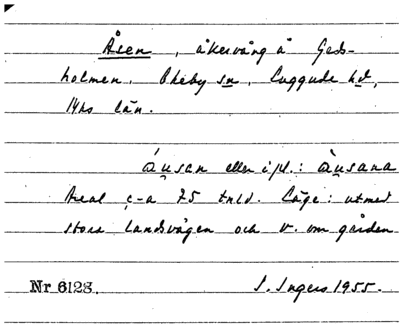 Åsen, åkervång å Geds-
holmen. Ekeby sn, Luggude hd,
Mhs län.
áu̯san eller i pl.: àu̯sana
Areal c-a 75 tnld. Läge: utmed
stora landsvägen och v. om gården
Nr 6128. I. Ingers 1955.